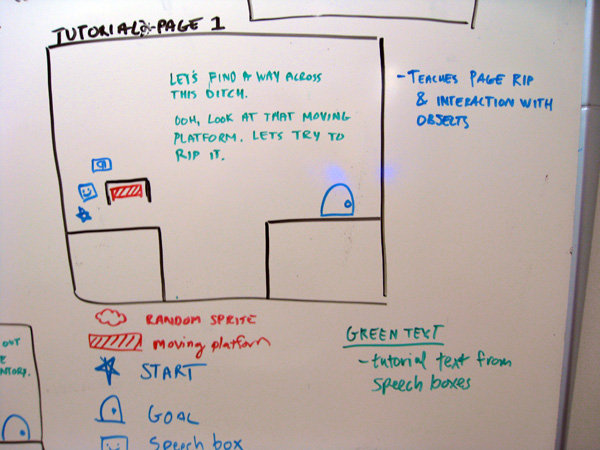 TUTORIAL: PAGE 1
LET'S FIND A WAY ACROSS
THIS DITCH.
OOH, LOOK AT THAT MOVING
PLATFORM. LETS TRY TO
RIP IT.
- TEACHES PAGE RIP
& INTERACTION WITH
OBJECTS
RANDOM SPRITE
moving platform
START
GOAL
Speech box
GREEN TEXT
- tutorial text from
speech boxes
OUT